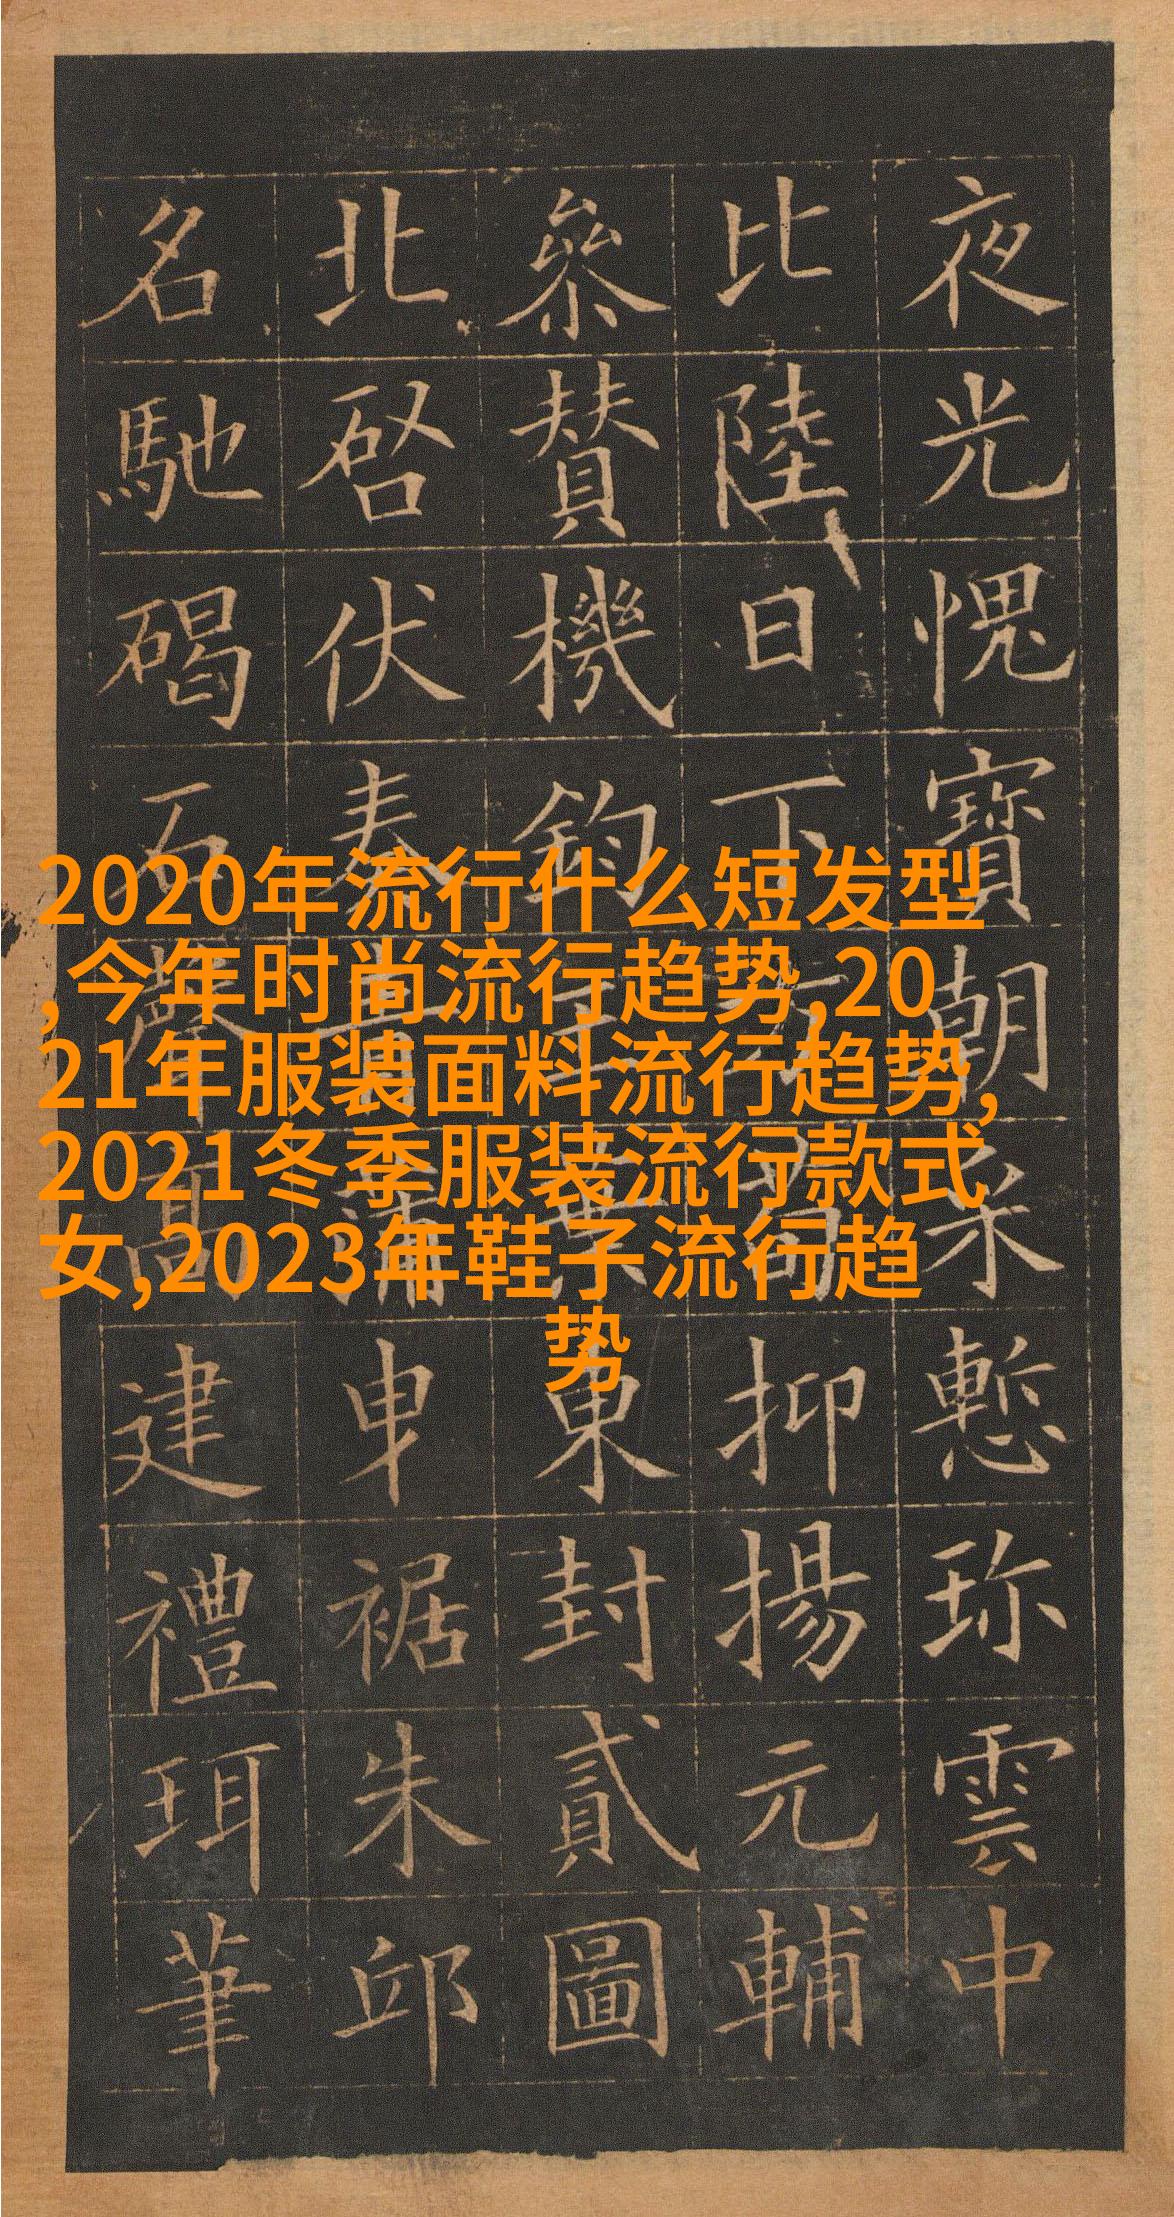 夜光愧寶朝采慙珎雲中
比陸日下抑揚元輔
參贊機鈞東封貳圖
北啓伏奏蒲申裾朱邱
名馳碣石聲高建禮珥筆
2020年流行什么短发型
,今年时尚流行趋势,20
21年服装面料流行趋势,
2021冬季服装流行款式
女,2023年鞋子流行趋
势